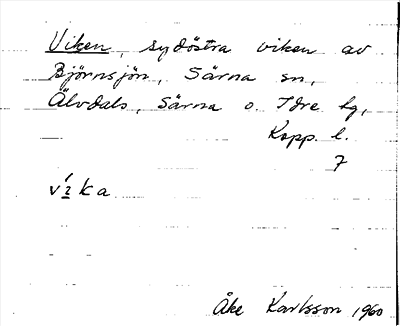 Viken, sydöstra viken av
Björnsjön, Särna sn,
Älvdals, Särna o. Idre tg,
Kopp. l.
7
vı́ka
Åke Karlsson 1960